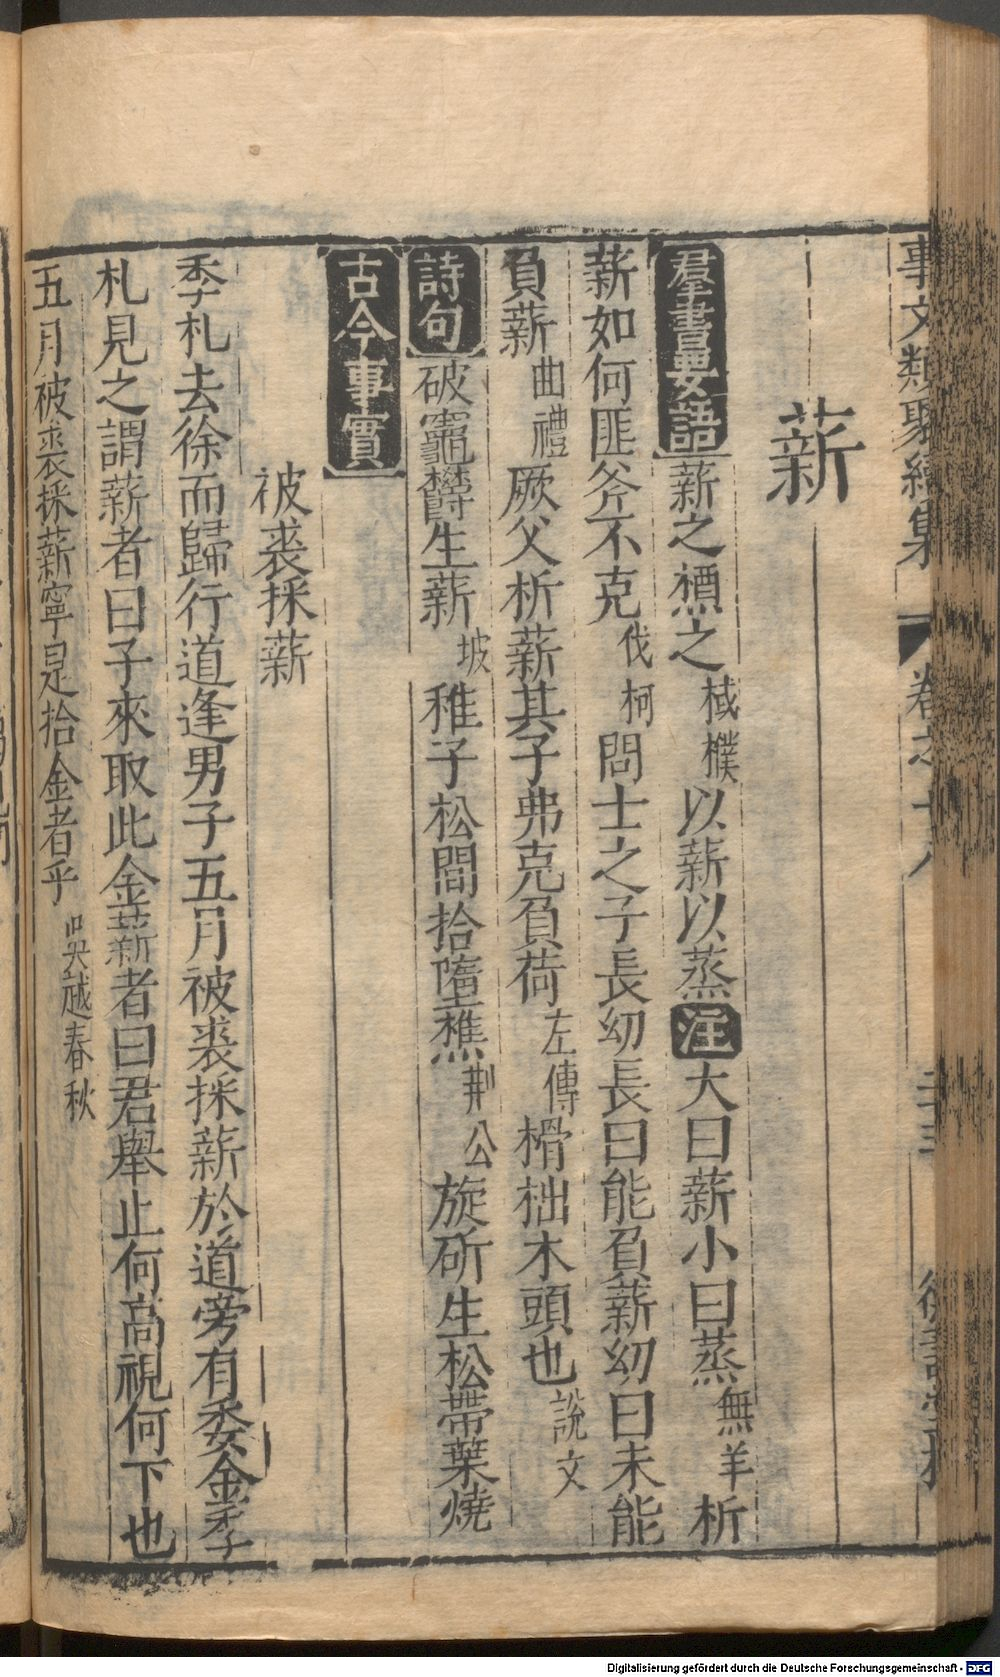 事文類聚續集 卷之十八
薪
羣書要語 薪之槱之 棫樸 以薪以蒸 注 大曰薪小曰蒸 無羊 析
薪如何匪斧不克 伐柯 問士之子長幼長曰能負薪幼曰未能
負薪 曲禮 厥父析薪其子弗克負荷 左傳 榾柮木頭也 說文
詩句 破竈欝生薪 坡 稚子松間拾墮樵 荆公 旋斫生松帶葉燒
古今事實
被裘採薪
季札去徐而歸行道逢男子五月被裘採薪於道旁有委金季
札見之謂薪者曰子來取此金薪者曰君舉止何高視何下也
五月被裘採薪寧是拾金者乎 吳越春秋
Digitalisierung gefördert durch die Deutsche Forschungsgemeinschaft - DFG